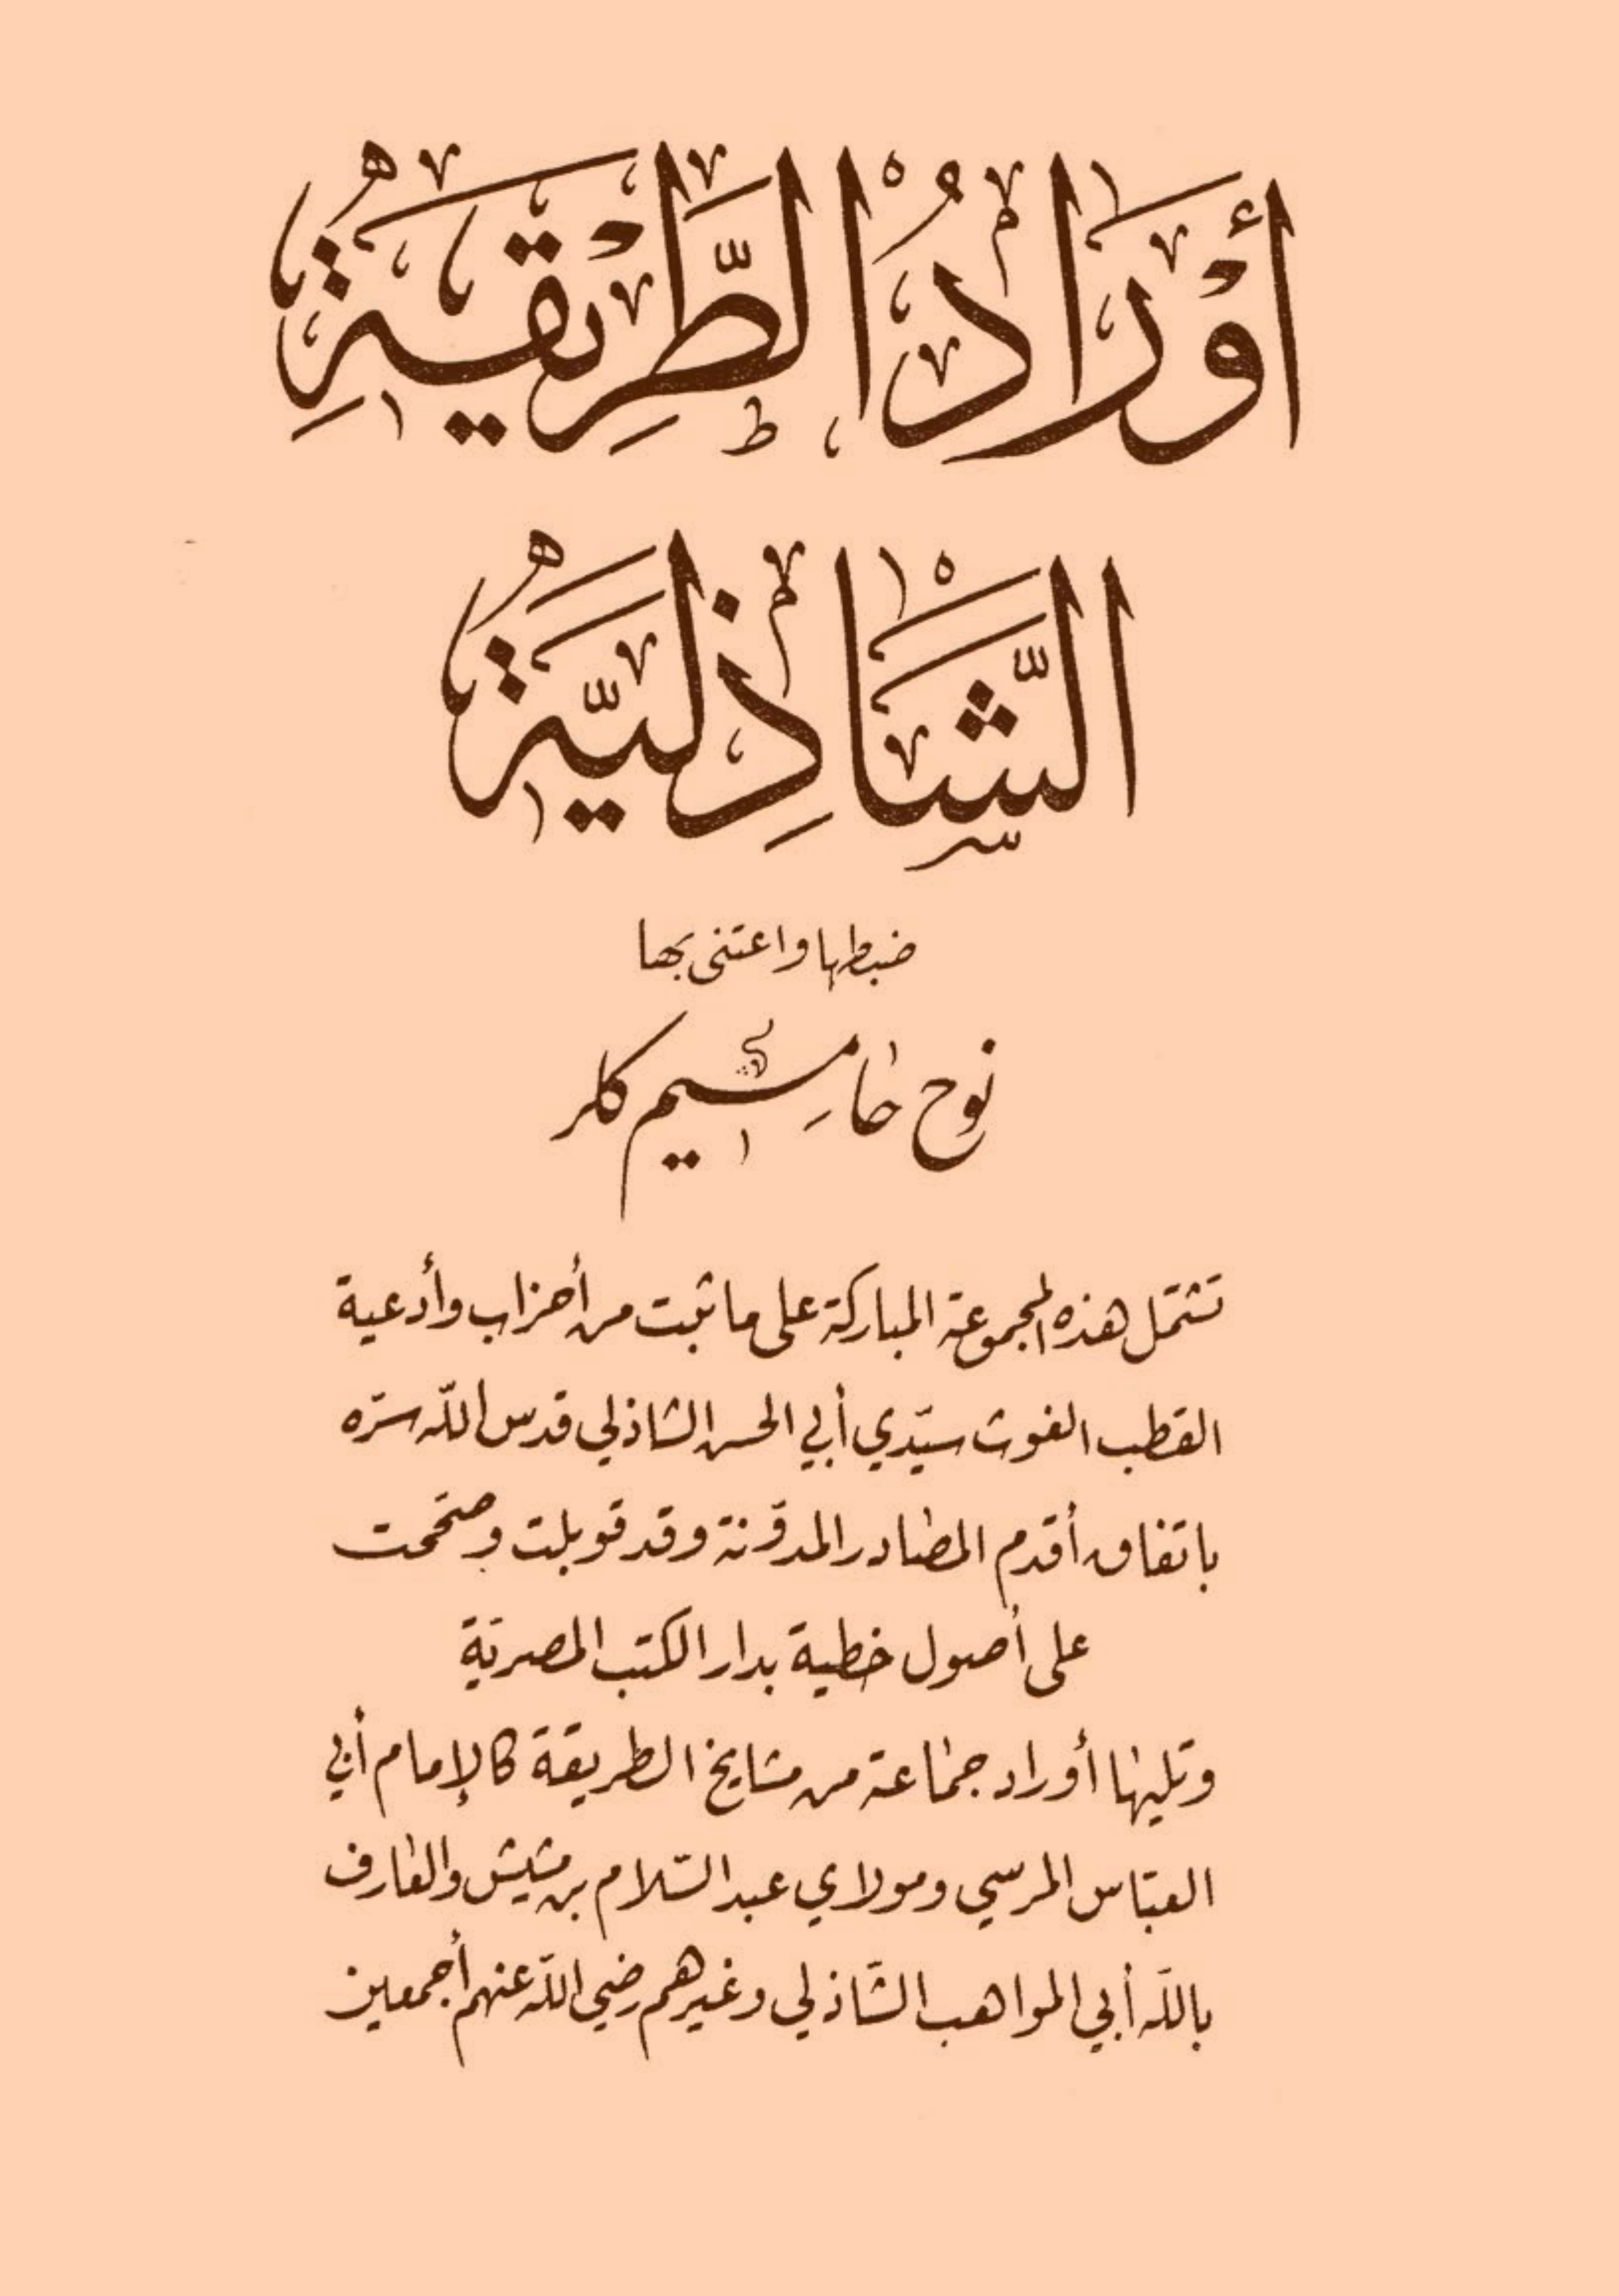 أَوْرَادُ الطَّرِيقَةِ
الشَّاذِلِيَّةِ
ضبطها واعتنى بها
نوح حاميم كلر
تشتمل هذه المجموعة المباركة على ما ثبت من أحزاب وأدعية
القطب الغوث سيّدي أبي الحسن الشاذلي قدس اللّه سرّه
باتفاق أقدم المصادر المدوّنة وقد قوبلت وصحّحت
على أصول خطية بدار الكتب المصريّة
وتليها أوراد جماعة من مشايخ الطريقة كالإمام أبي
العبّاس المرسي ومولاي عبد السّلام بن مشيش والعارف
باللّه أبي المواهب الشّاذلي وغيرهم رضي اللّه عنهم أجمعين